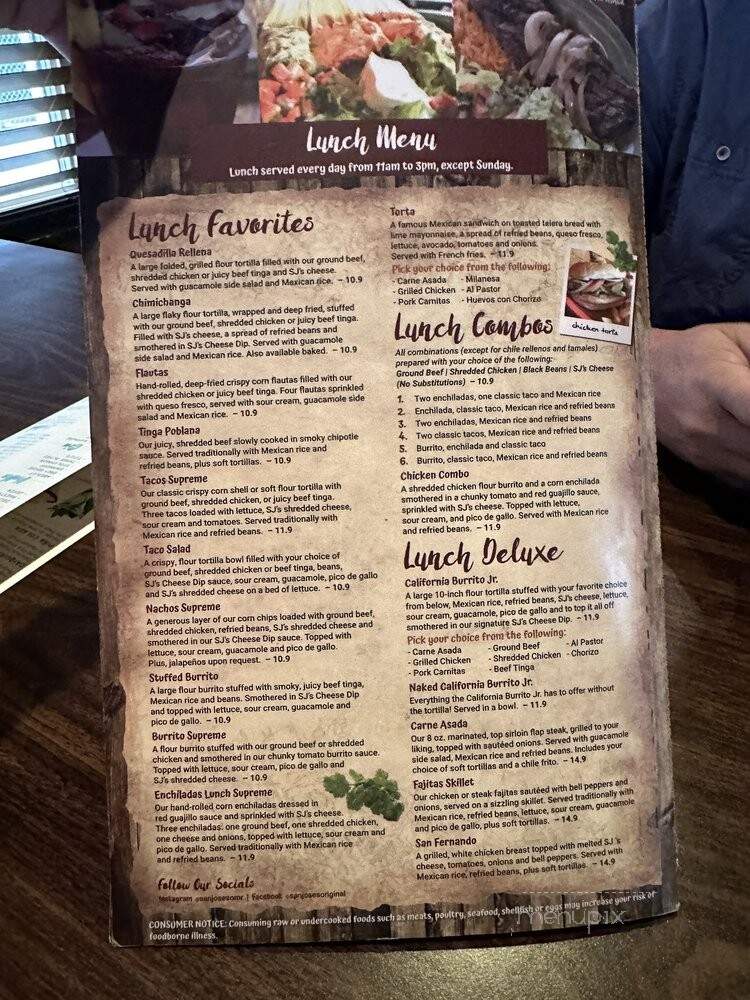 Lunch Menu
Lunch served every day from 11am to 3pm, except Sunday.
Lunch Favorites
Quesadilla Rellena
A large folded, grilled flour tortilla filled with our ground beef,
shredded chicken or juicy beef tinga and SJ's cheese.
Served with guacamole side salad and Mexican rice. – 10.9
Chimichanga
A large flaky flour tortilla, wrapped and deep fried, stuffed
with our ground beef, shredded chicken or juicy beef tinga.
Filled with SJ's cheese, a spread of refried beans and
smothered in SJ's Cheese Dip. Served with guacamole
side salad and Mexican rice. Also available baked. – 10.9
Flautas
Hand-rolled, deep-fried crispy corn flautas filled with our
shredded chicken or juicy beef tinga. Four flautas sprinkled
with queso fresco, served with sour cream, guacamole side
salad and Mexican rice. – 10.9
Tinga Poblana
Our juicy, shredded beef slowly cooked in smoky chipotle
sauce. Served traditionally with Mexican rice and
refried beans, plus soft tortillas. – 10.9
Tacos Supreme
Our classic crispy corn shell or soft flour tortilla with
ground beef, shredded chicken, or juicy beef tinga.
Three tacos loaded with lettuce, SJ's shredded cheese,
sour cream and tomatoes. Served traditionally with
Mexican rice and refried beans. – 11.9
Taco Salad
A crispy, flour tortilla bowl filled with your choice of
ground beef, shredded chicken or beef tinga, beans,
SJ's Cheese Dip sauce, sour cream, guacamole, pico de gallo
and SJ's shredded cheese on a bed of lettuce. – 10.9
Nachos Supreme
A generous layer of our corn chips loaded with ground beef,
shredded chicken, refried beans, SJ's shredded cheese and
smothered in our SJ's Cheese Dip sauce. Topped with
lettuce, sour cream, guacamole and pico de gallo.
Plus, jalapeños upon request. – 10.9
Stuffed Burrito
A large flour burrito stuffed with smoky, juicy beef tinga,
Mexican rice and beans. Smothered in SJ's Cheese Dip
and topped with lettuce, sour cream, guacamole and
pico de gallo. – 10.9
Burrito Supreme
A flour burrito stuffed with our ground beef or shredded
chicken and smothered in our chunky tomato burrito sauce.
Topped with lettuce, sour cream, pico de gallo and
SJ's shredded cheese. – 10.9
Enchiladas Lunch Supreme
Our hand-rolled corn enchiladas dressed in
red guajillo sauce and sprinkled with SJ's cheese.
Three enchiladas: one ground beef, one shredded chicken,
one cheese and onions, topped with lettuce, sour cream and
pico de gallo. Served traditionally with Mexican rice
and refried beans. – 11.9
Follow Our Socials
Instagram @sanjosesomr | Facebook: @sanjosesoriginal
Torta
A famous Mexican sandwich on toasted telera bread with
lime mayonnaise, a spread of refried beans, queso fresco,
lettuce, avocado, tomatoes and onions.
Served with French fries. – 11.9
Pick your choice from the following:
- Carne Asada - Milanesa
- Grilled Chicken - Al Pastor
- Pork Carnitas - Huevos con Chorizo
chicken torta
Lunch Combos
All combinations (except for chile rellenos and tamales)
prepared with your choice of the following:
Ground Beef | Shredded Chicken | Black Beans | SJ's Cheese
(No Substitutions) – 10.9
1. Two enchiladas, one classic taco and Mexican rice
2. Enchilada, classic taco, Mexican rice and refried beans
3. Two enchiladas, Mexican rice and refried beans
4. Two classic tacos, Mexican rice and refried beans
5. Burrito, enchilada and classic taco
6. Burrito, classic taco, Mexican rice and refried beans
Chicken Combo
A shredded chicken flour burrito and a corn enchilada
smothered in a chunky tomato and red guajillo sauce,
sprinkled with SJ's cheese. Topped with lettuce,
sour cream, and pico de gallo. Served with Mexican rice
and refried beans. – 11.9
Lunch Deluxe
California Burrito Jr.
A large 10-inch flour tortilla stuffed with your favorite choice
from below, Mexican rice, refried beans, SJ's cheese, lettuce,
sour cream, guacamole, pico de gallo and to top it all off
smothered in our signature SJ's Cheese Dip. – 11.9
Pick your choice from the following:
- Carne Asada - Ground Beef - Al Pastor
- Grilled Chicken - Shredded Chicken - Chorizo
- Pork Carnitas - Beef Tinga
Naked California Burrito Jr.
Everything the California Burrito Jr. has to offer without
the tortilla! Served in a bowl. – 11.9
Carne Asada
Our 8 oz. marinated, top sirloin flap steak, grilled to your
liking, topped with sautéed onions. Served with guacamole
side salad, Mexican rice and refried beans. Includes your
choice of soft tortillas and a chile frito. – 14.9
Fajitas Skillet
Our chicken or steak fajitas sautéed with bell peppers and
onions, served on a sizzling skillet. Served traditionally with
Mexican rice, refried beans, lettuce, sour cream, guacamole
and pico de gallo, plus soft tortillas. – 14.9
San Fernando
A grilled, white chicken breast topped with melted SJ 's
cheese, tomatoes, onions and bell peppers. Served with
Mexican rice, refried beans, plus soft tortillas. – 14.9
CONSUMER NOTICE: Consuming raw or undercooked foods such as meats, poultry, seafood, shellfish or eggs may increase your risk of
foodborne illness.
menupix